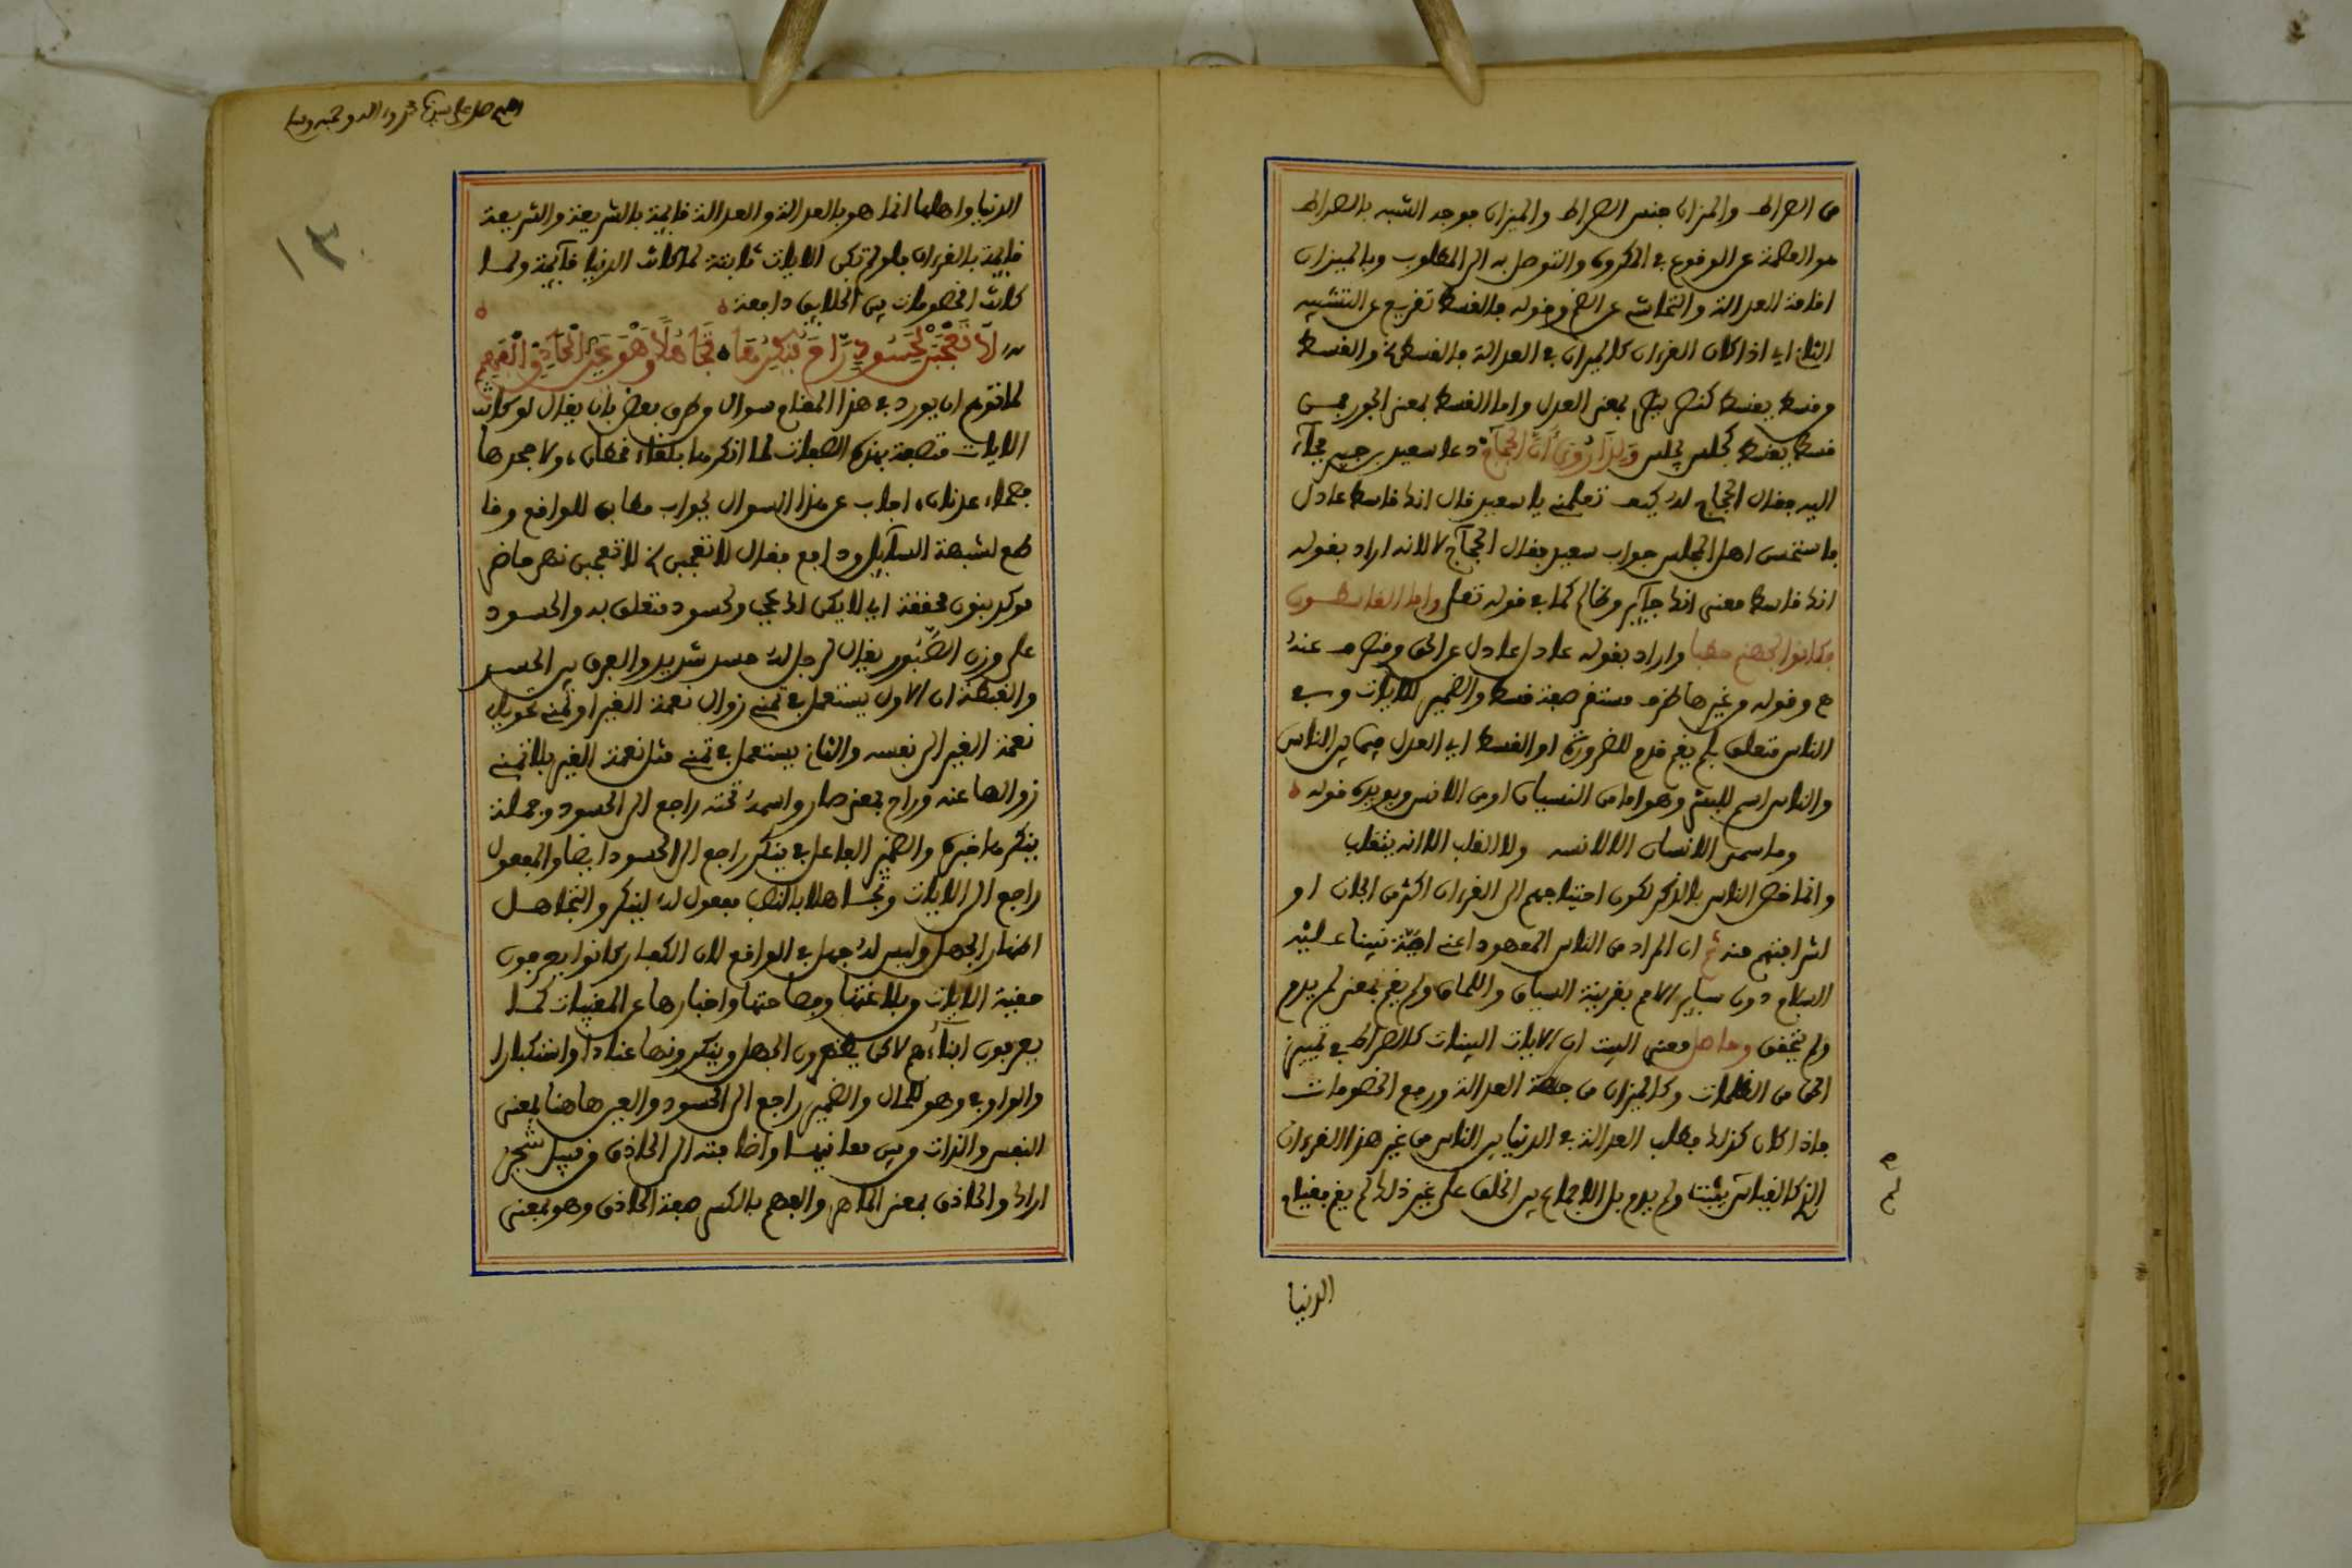 من الصراط والميزان جنس الصراط والميزان فوجه الشبه بالصراط
هو العصمة عن الوقوع في المكروه والتوصل به الى المطلوب وبالميزان
اقامة العدالة والتحاشي عن وقوله فالقسط تفريع عن التشبيه
الثاني اي اذا كان القرءان كالميزان في العدالة فالقسط والقسط
وقسط يقسط كنصر ينصر بمعنى العدل واما القسط بمعنى الجور فمن
قسط يقسط كجلس يجلس ولذا روي ان الحجاج دعا سعيد بن جبير فجاء
اليه فقال الحجاج له كيف تعلمني يا سعيد قال انك قاسط عادل
فاستحسن اهل المجلس جواب سعيد فقال الحجاج لا لانه اراد بقوله
انك قاسط معنى انك جآير وظالم كما في قوله تعلى واما القاسطون
فكانوا لجهنم حطبا واراد بقوله عادل عادل عن الحق ومنصرف عنه
وقوله وغيرها ظرف مستقر صفة قسط والضمير للايات وفي
الناس متعلق بلم يقم قدم للضرورة او القسط اي العدل فيما بين الناس
والناس اسم للبشر وهو اما من النسيان او من الانس ويويده قوله
وما سمي الانسان الا لانسه ولا القلب الا انه يتقلب
وانما خص الناس بالذكر لكون احتياجهم الى القرءان اكثر من الجان او
اشرافيتهم منه ثم ان المراد من الناس المعهود اعني امة نبينا عليه
السلام دون ساير الامم بقرينة السياق واللحاق ولم يقم بمعنى لم يدم
ولم يتحقق وحاصل معنى البيت ان الايات البينات كالصراط في تمييز
الحق من الظلمات وكالميزان من جهة العدالة ورفع الخصومات
فاذا كان كذلك فطلب العدالة في الدنيا بين الناس من غير هذا القرءان
لم يدم بل الاجماع بين الخلق على غير ذلك لم يقم فقيام
الدنيا
الدنيا واهلها انما هو بالعدالة والعدالة قايمة بالشريعة والشريعة
قايمة بالقرءان فلو لم تكن الايات ثابتة لما كانت الدنيا قآيمة ولما
كانت الخصومات بين الخلايق دافعة
لا تعجبن لحسود راح ينكرها تجاهلا وهو عين الحاذق الفهم
لما توهم ان يورد في هذا المقام سوال وطرف بعض بان يقال لو كانت
الايات متصفة بهذه الصفات لما انكرها بلغاء قحطان ولا جحدها
فصحاء عدنان اجاب عن هذا السوال بجواب مطابق للواقع وقا
طع لشبهة السآيل ودافع فقال لا تعجبن لا تعجبن نهي حاضر
موكد بنون مخففة اي لا يكن لك عجب ولحسود متعلق به والحسود
على وزن الصبور يقال لرجل له حسد شديد والفرق بين الحسد
والغبطة ان الاول يستعمل في تمني زوال نعمة الغير او تمني تحويل
نعمة الغير الى نفسه والثاني يستعمل في تمني مثل نعمة الغير بلا تمني
زوالها عنه وراح بمعنى صار واسمه تحته راجع الى الحسود وجملة
ينكرها خبره والضمير الفاعل في ينكر راجع الى الحسود ايضا والمفعول
راجع الى الايات وتجاهلا بالنصب مفعول له لينكر والتجاهل
اظهار الجهل وليس له جهل في الواقع لان الكفار كانوا يعرفون
حقية الايات وبلاغتها وفصاحتها واخبارها عن المغيبات كما
يعرفون ابنآءهم لاكن يظهرون الجهل وينكرونها عنادا واستكبارا
والواو في وهو للحال والضمير راجع الى الحسود والعين هاهنا بمعنى
النفس والذات وبين معانيها واضافته الى الحاذق من قبيل شجر
اراك والحاذق بمعنى الماهر والفهم بالكسر صفة الحاذق وهو بمعنى